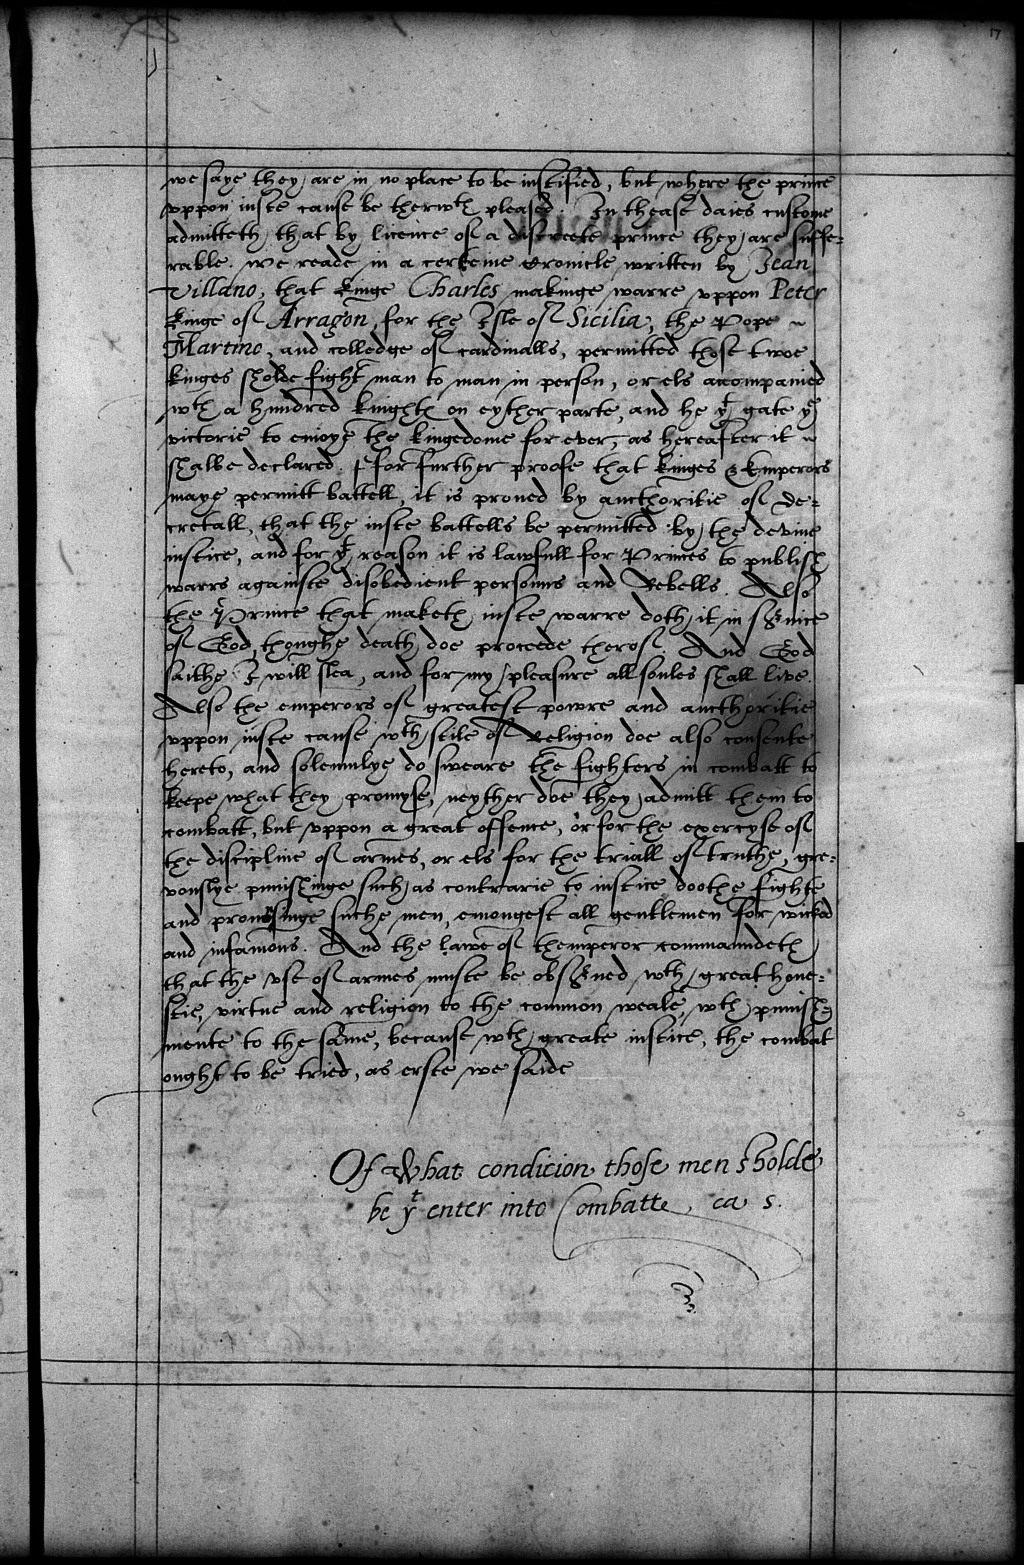 17
we saye they are in no place to be iustified, but where the prince
vppon iuste cause be therwth pleased. In thease daies custome
admitteth, that by licence of a discreete prince they are suffe-
rable. we reade in a certeine cronicle written by Jean
Villano, that kinge Charles makinge warre vppon Peter
kinge of Arragon, for the Isle of Sicilia, the Pope ~
Martino, and colledge of cardinalls, permitted those twoe
kinges sholde fight man to man in person, or els accompanied
wth a hundred knights on eyther parte, and he yt gate ye
victorie to enioye the kingedome for ever, as hereafter it ~
shalbe declared. ffor further proofe that kinges & Emperors
maye permitt battell, it is proued by aucthoritie of de-
cretall, that the iuste battells be permitted by the devine
iustice, and for yt reason it is lawfull for Princes to publish
warrs againste disobedient persouns and Rebells. Also
the Prince that maketh iuste warre doth it in seruice
of God, thoughe death doe proceede therof. And God
saithe I will slea, and for my pleasure all soules shall live.
Also the emperors of greatest powre and aucthoritie
vppon iuste cause wth stile of Religion doe also consente
hereto, and solemnlye do sweare the fighters in combatt to
keepe what they promyse, neyther doe they admitt them to
combatt, but vppon a great offence, or for the exercyse of
the discipline of armes, or els for the triall of truthe, gre-
vouslye punishinge such as contrarie to iustice doothe fighte
and pronouncinge suche men, emongest all gentlemen for wicked
and infamous. And the lawe of themperor commaundeth
that the vse of armes muste be obserued wth great hone-
stie, virtue and religion to the common weale, wth punish-
mente to the same, because wth greate iustice, the combat
ought to be tried, as erste we saide
Of What condicion those men sholde
be yt enter into Combatte, ca 5.